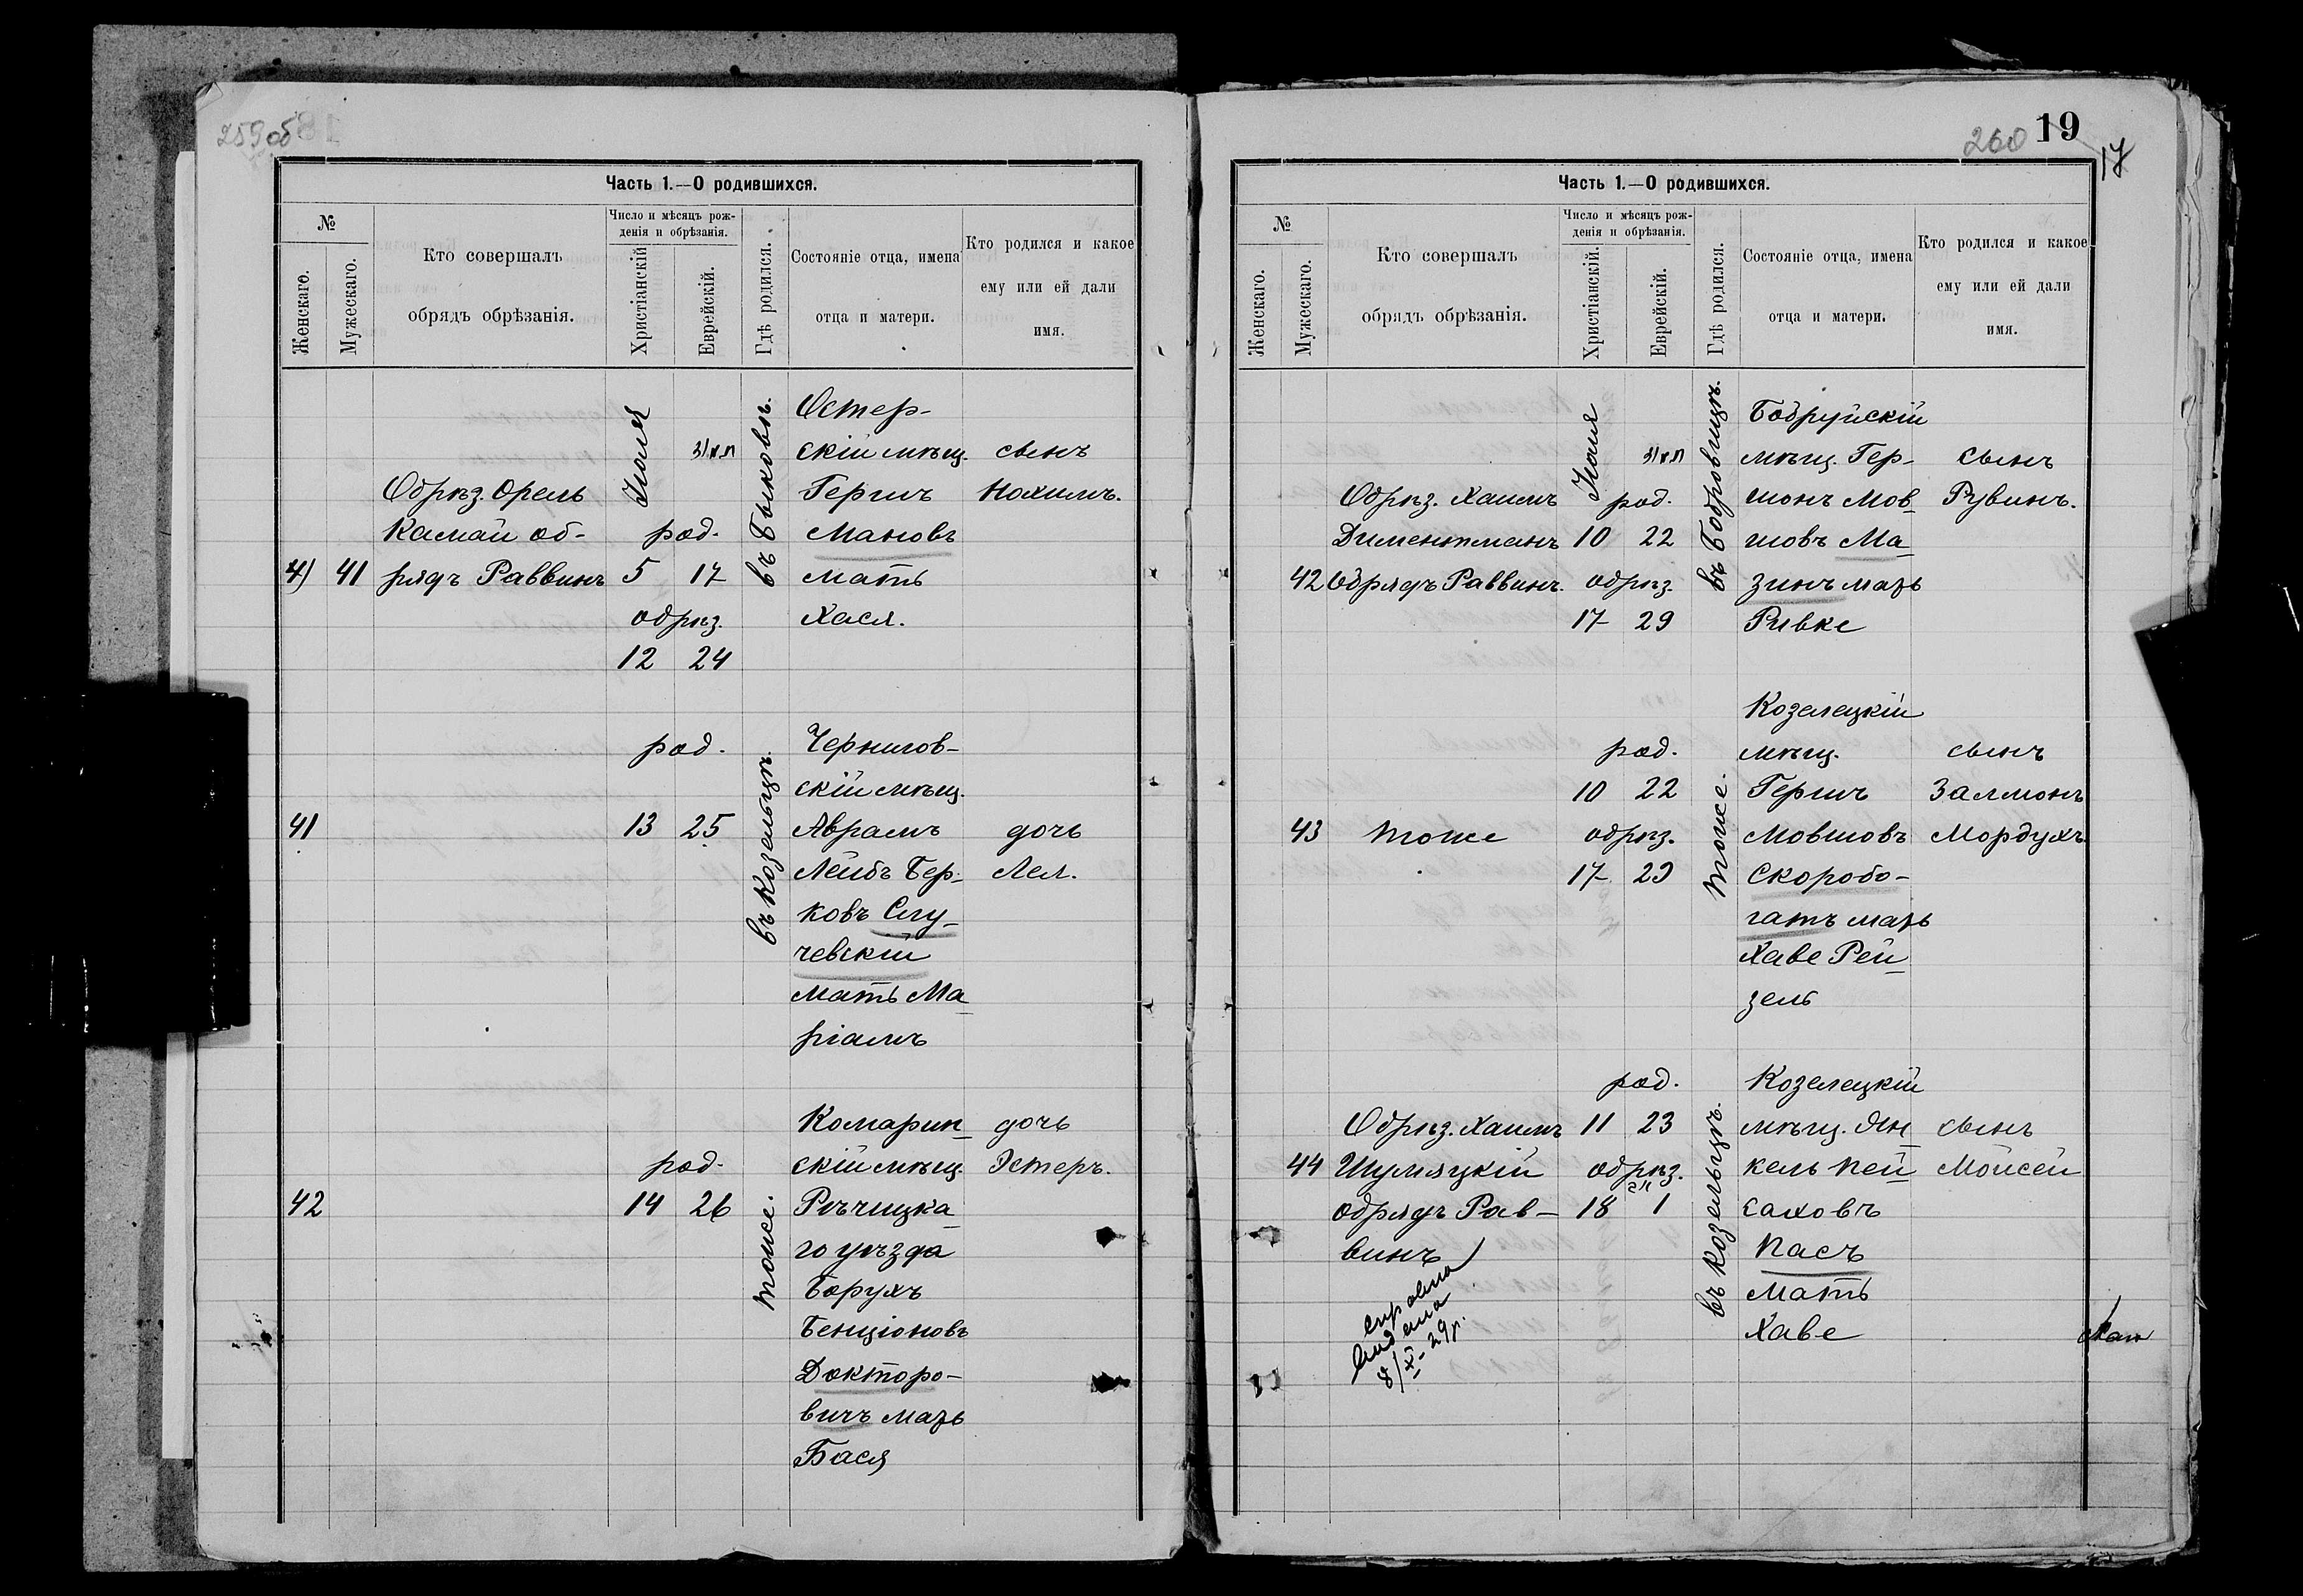 259 об
Часть 1.—О родившихся.
№
Женскаго.
Мужескаго.
Кто совершалъ
обрядъ обрѣзанія.
Число и мѣсяцъ рож-
денія и обрѣзанія.
Христіанскій
Еврейскій.
Гдѣ родился.
Состояніе отца, имена
отца и матери.
Кто родился и какое
ему или ей дали
имя.
41
Обрѣз. Орель
Камай об-
рядъ Раввинъ
Іюля
род.
5 17
обрѣз.
12 24
въ Быковѣ.
Остер-
скій мѣщ.
Гершъ
Мановъ
мать
Хася.
сынъ
Нохимъ.
41
род.
13 25
въ Козельцѣ.
Чернигов-
скій мѣщ.
Аврамъ
Лейбъ Бер-
ковъ Слу-
чевскій
мать Ма-
ріамъ
дочь
Лея.
42
род.
14 26
тоже.
Комарин-
скій мѣщ.
Рѣчицка-
го уѣзда
Борухъ
Бенціоновъ
Докторо-
вичъ мать
Бася
дочь
Эстеръ.
260
19
17
Часть 1.—О родившихся.
№
Женскаго.
Мужескаго.
Кто совершалъ
обрядъ обрѣзанія.
Число и мѣсяцъ рож-
денія и обрѣзанія.
Христіанскій.
Еврейскій.
Гдѣ родился.
Состояніе отца, имена
отца и матери.
Кто родился и какое
ему или ей дали
имя.
42
Обрѣз. Хаимъ
Диментманъ
Обрядъ Раввинъ.
Іюля
род.
10 22
обрѣз.
17 29
въ Бобровицѣ.
Бобруйскій
мѣщ. Гер-
шонъ Мов-
шовъ Ма-
зинъ мать
Ривке
сынъ
Рувинъ.
43
тоже
род.
10 22
обрѣз.
17 29
тоже.
Козелецкій
мѣщ.
Гершъ
Мовшовъ
Скоробо-
гатъ мать
Хаве Рей-
зель
сынъ
Залмонъ
Мордухъ.
44
Обрѣз. Хаимъ
Шумяцкій
обрядъ Рав-
винъ
род.
11 23
обрѣз.
18 1
въ Козельцѣ.
Козелецкій
мѣщ. Ян-
кель Пей-
саховъ
Пасъ
Мать
Хаве
сынъ
Мойсей
8/X-29р.